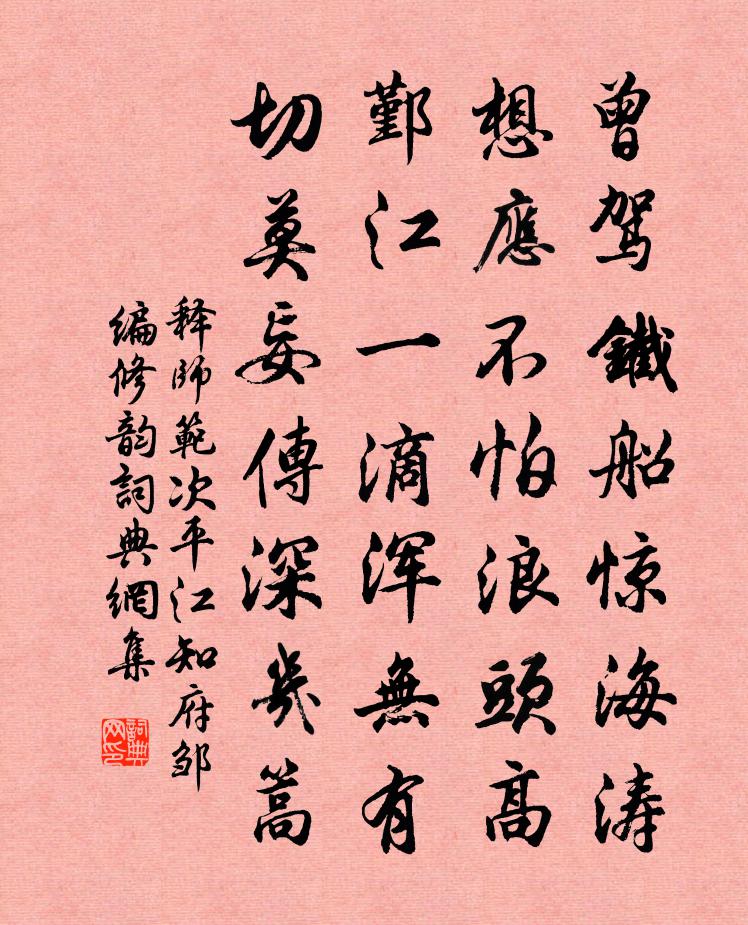 曾驾鐵船惊海涛
想應不怕浪頭高
鄞江一滴浑無有
切莫妄傳深幾篙
释師範次平江知府邹
編修韵詞典網集
詞典
网印